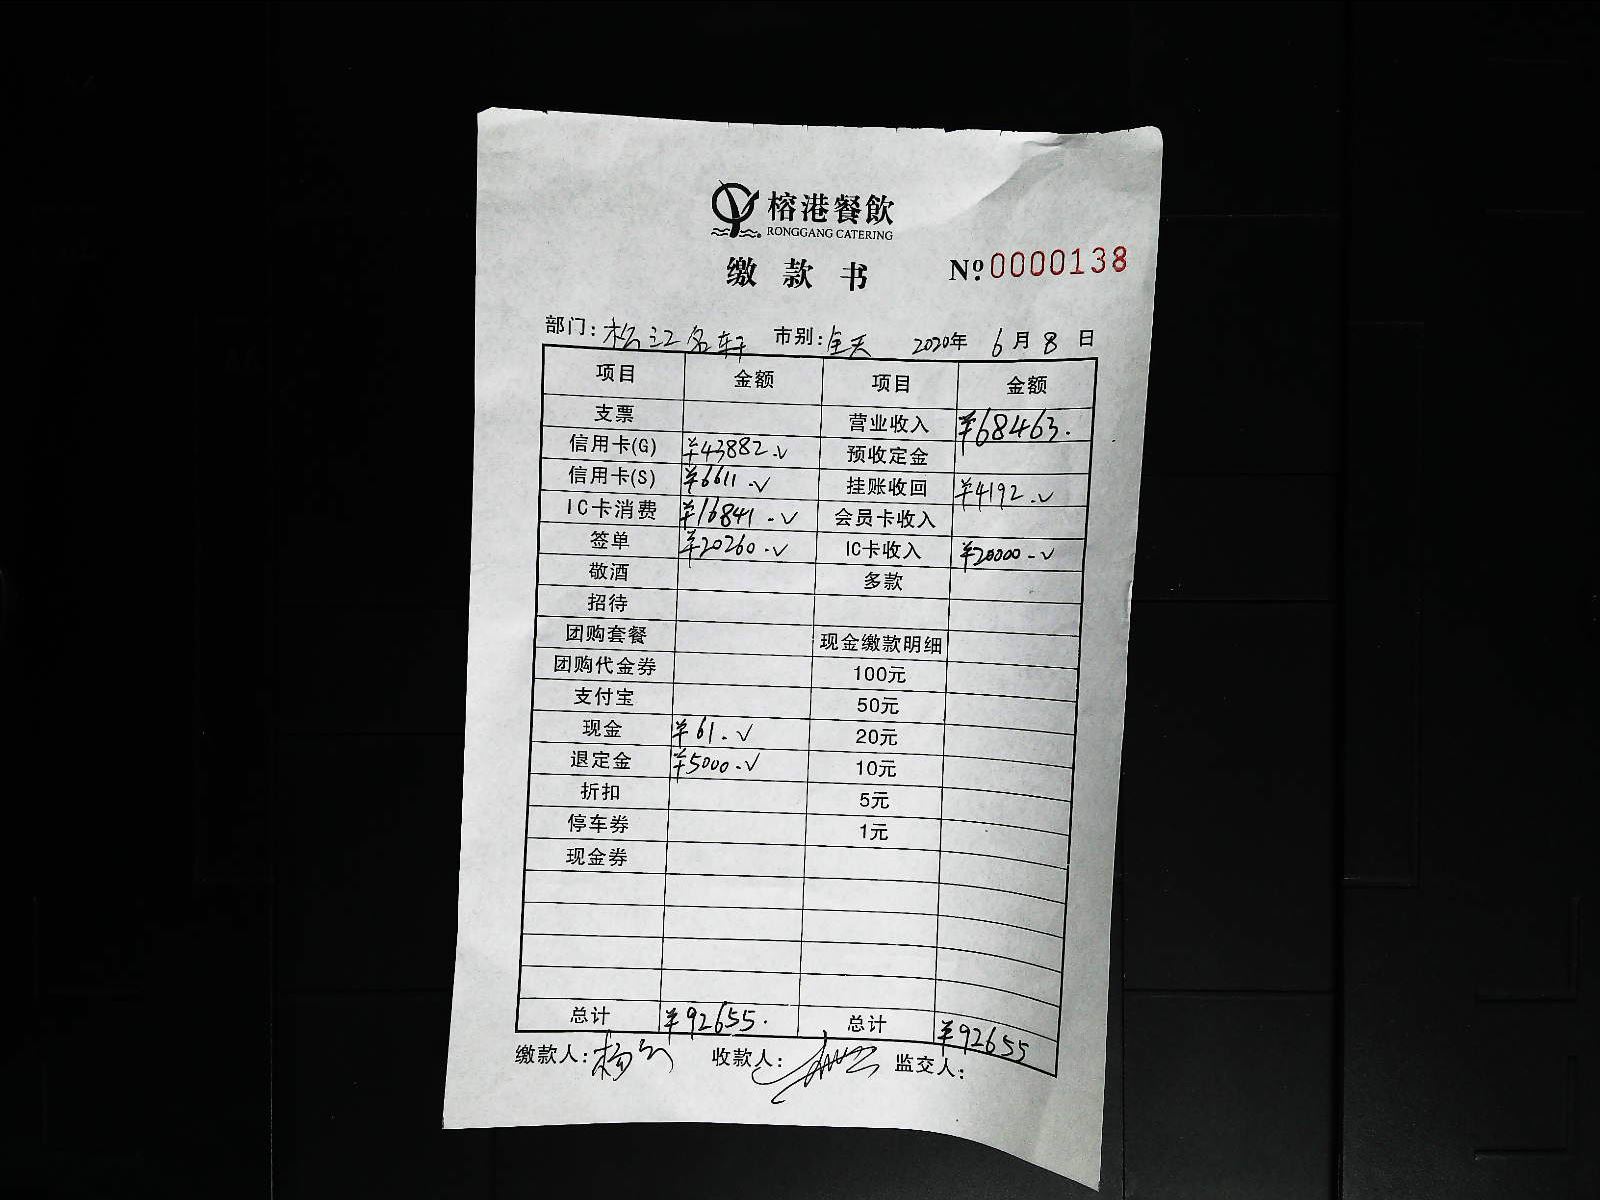 榕港餐飲
RONGGANG CATERING
缴款书 №0000138
部门:松江名轩 市别:全天 2020年 6月 8日
项目 金额 项目 金额
支票 营业收入 ¥68463.
信用卡(G) ¥43882.✓ 预收定金
信用卡(S) ¥6611.✓ 挂账收回 ¥4192.✓
IC卡消费 ¥16841.✓ 会员卡收入
签单 ¥20260.✓ IC卡收入 ¥20000.✓
敬酒 多款
招待
团购套餐 现金缴款明细
团购代金券 100元
支付宝 50元
现金 ¥61.✓ 20元
退定金 ¥5000.✓ 10元
折扣 5元
停车券 1元
现金券
总计 ¥92655. 总计 ¥92655
缴款人:杨 收款人: 监交人: